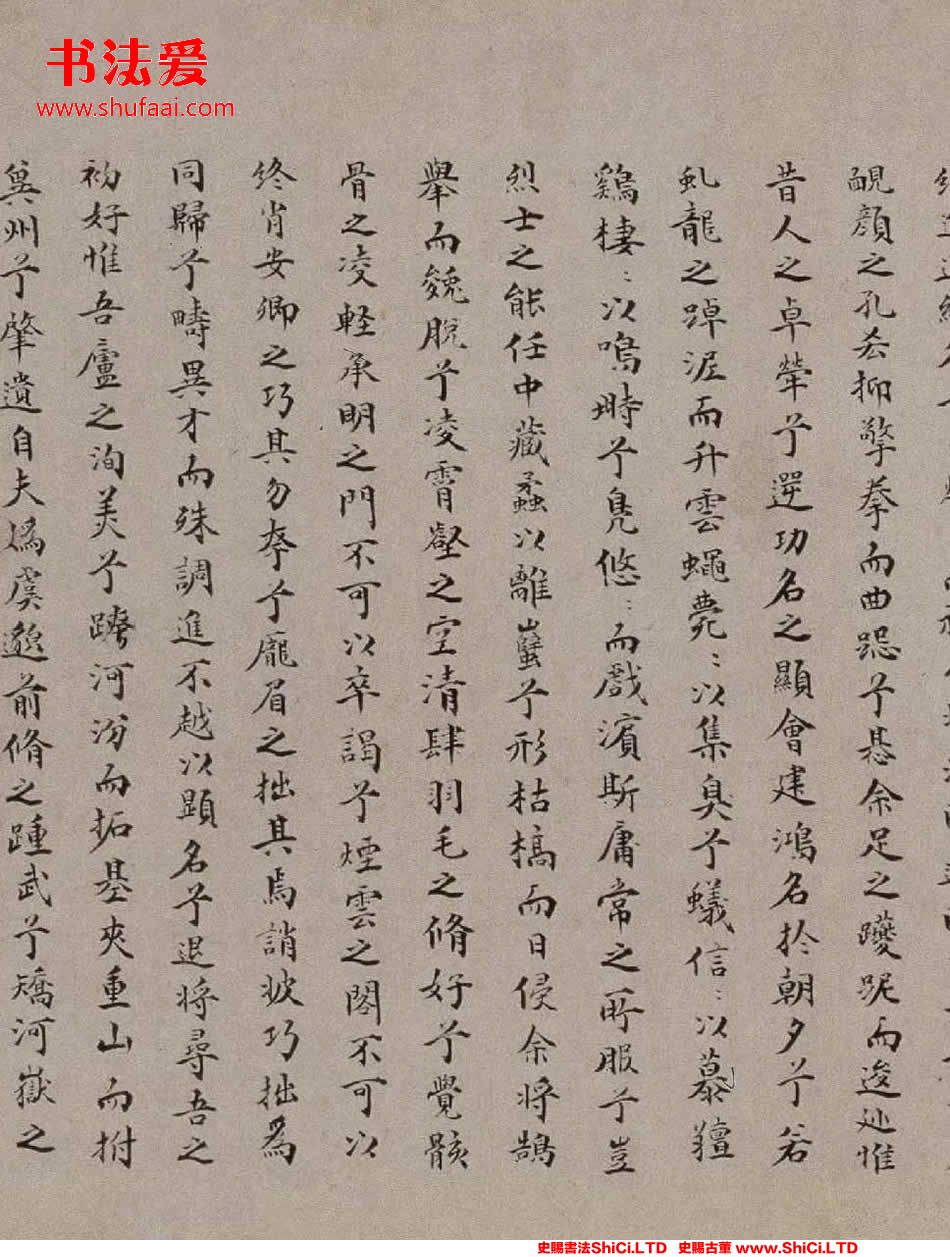 书法爱
www.shufaai.com
靦顏之孔厷抑擎拳而曲跽兮惎余足之躨跜而逡迆惟
昔人之卓犖兮選功名之顯會建鴻名於朝夕兮若
虬龍之踔泥而升雲蠅薨：以集臭兮蟻信：以慕羶
鷄棲：以鳴時兮鳧悠：而戲濱斯庸常之所服兮豈
烈士之能任中藏蠡以離蠥兮形枯槁而日侵余將鵠
舉而兔脫兮凌霄壑之空清肆羽毛之脩好兮覺骸
骨之凌輕承明之門不可以卒謁兮煙雲之閣不可以
終肯安卿之巧其勿奪兮龐眉之拙其焉誚披巧拙為
同歸兮疇異才而殊調進不越以顯名兮退將尋吾之
初好惟吾廬之洵美兮跨河汾而拓基夾重山而拊
冀州兮肇遺自夫媯虞邈前脩之踵武兮矯河嶽之
史賜書法ShiCi.LTD 史賜古董 www.ShiCi.LTD